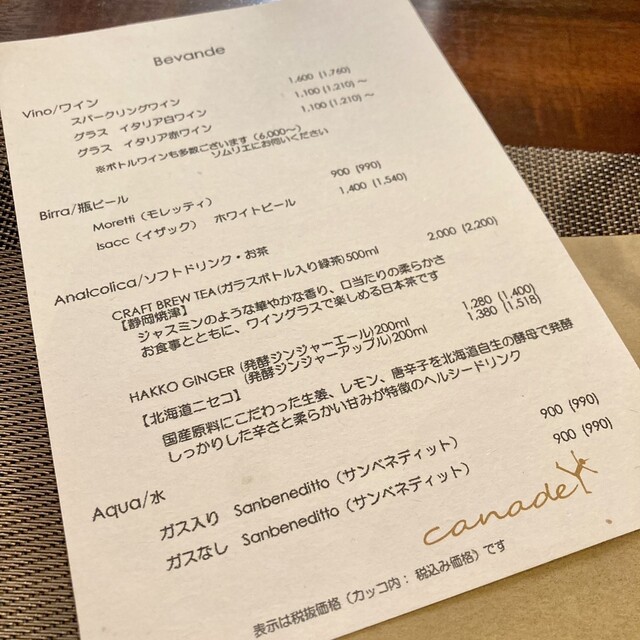 Bevande
Vino/ワイン
スパークリングワイン 1,600 (1,760)
グラス イタリア白ワイン 1,100 (1,210)～
グラス イタリア赤ワイン 1,100 (1,210)～
※ボトルワインも多数ございます（6,000～）
ソムリエにお伺いください
Birra/瓶ビール
Moretti（モレッティ） 900 (990)
Isacc（イザック） ホワイトビール 1,400 (1,540)
Analcolica/ソフトドリンク・お茶
CRAFT BREW TEA(ガラスボトル入り緑茶)500ml 2,000 (2,200)
【静岡焼津】
ジャスミンのような華やかな香り、口当たりの柔らかさ
お食事とともに、ワイングラスで楽しめる日本茶です
HAKKO GINGER (発酵ジンジャーエール)200ml 1,280 (1,400)
(発酵ジンジャーアップル)200ml 1,380 (1,518)
【北海道ニセコ】
国産原料にこだわった生姜、レモン、唐辛子を北海道自生の酵母で発酵
しっかりした辛さと柔らかい甘みが特徴のヘルシードリンク
Aqua/水
ガス入り Sanbeneditto（サンベネディット） 900 (990)
ガスなし Sanbeneditto（サンベネディット） 900 (990)
canade
表示は税抜価格（カッコ内： 税込み価格）です